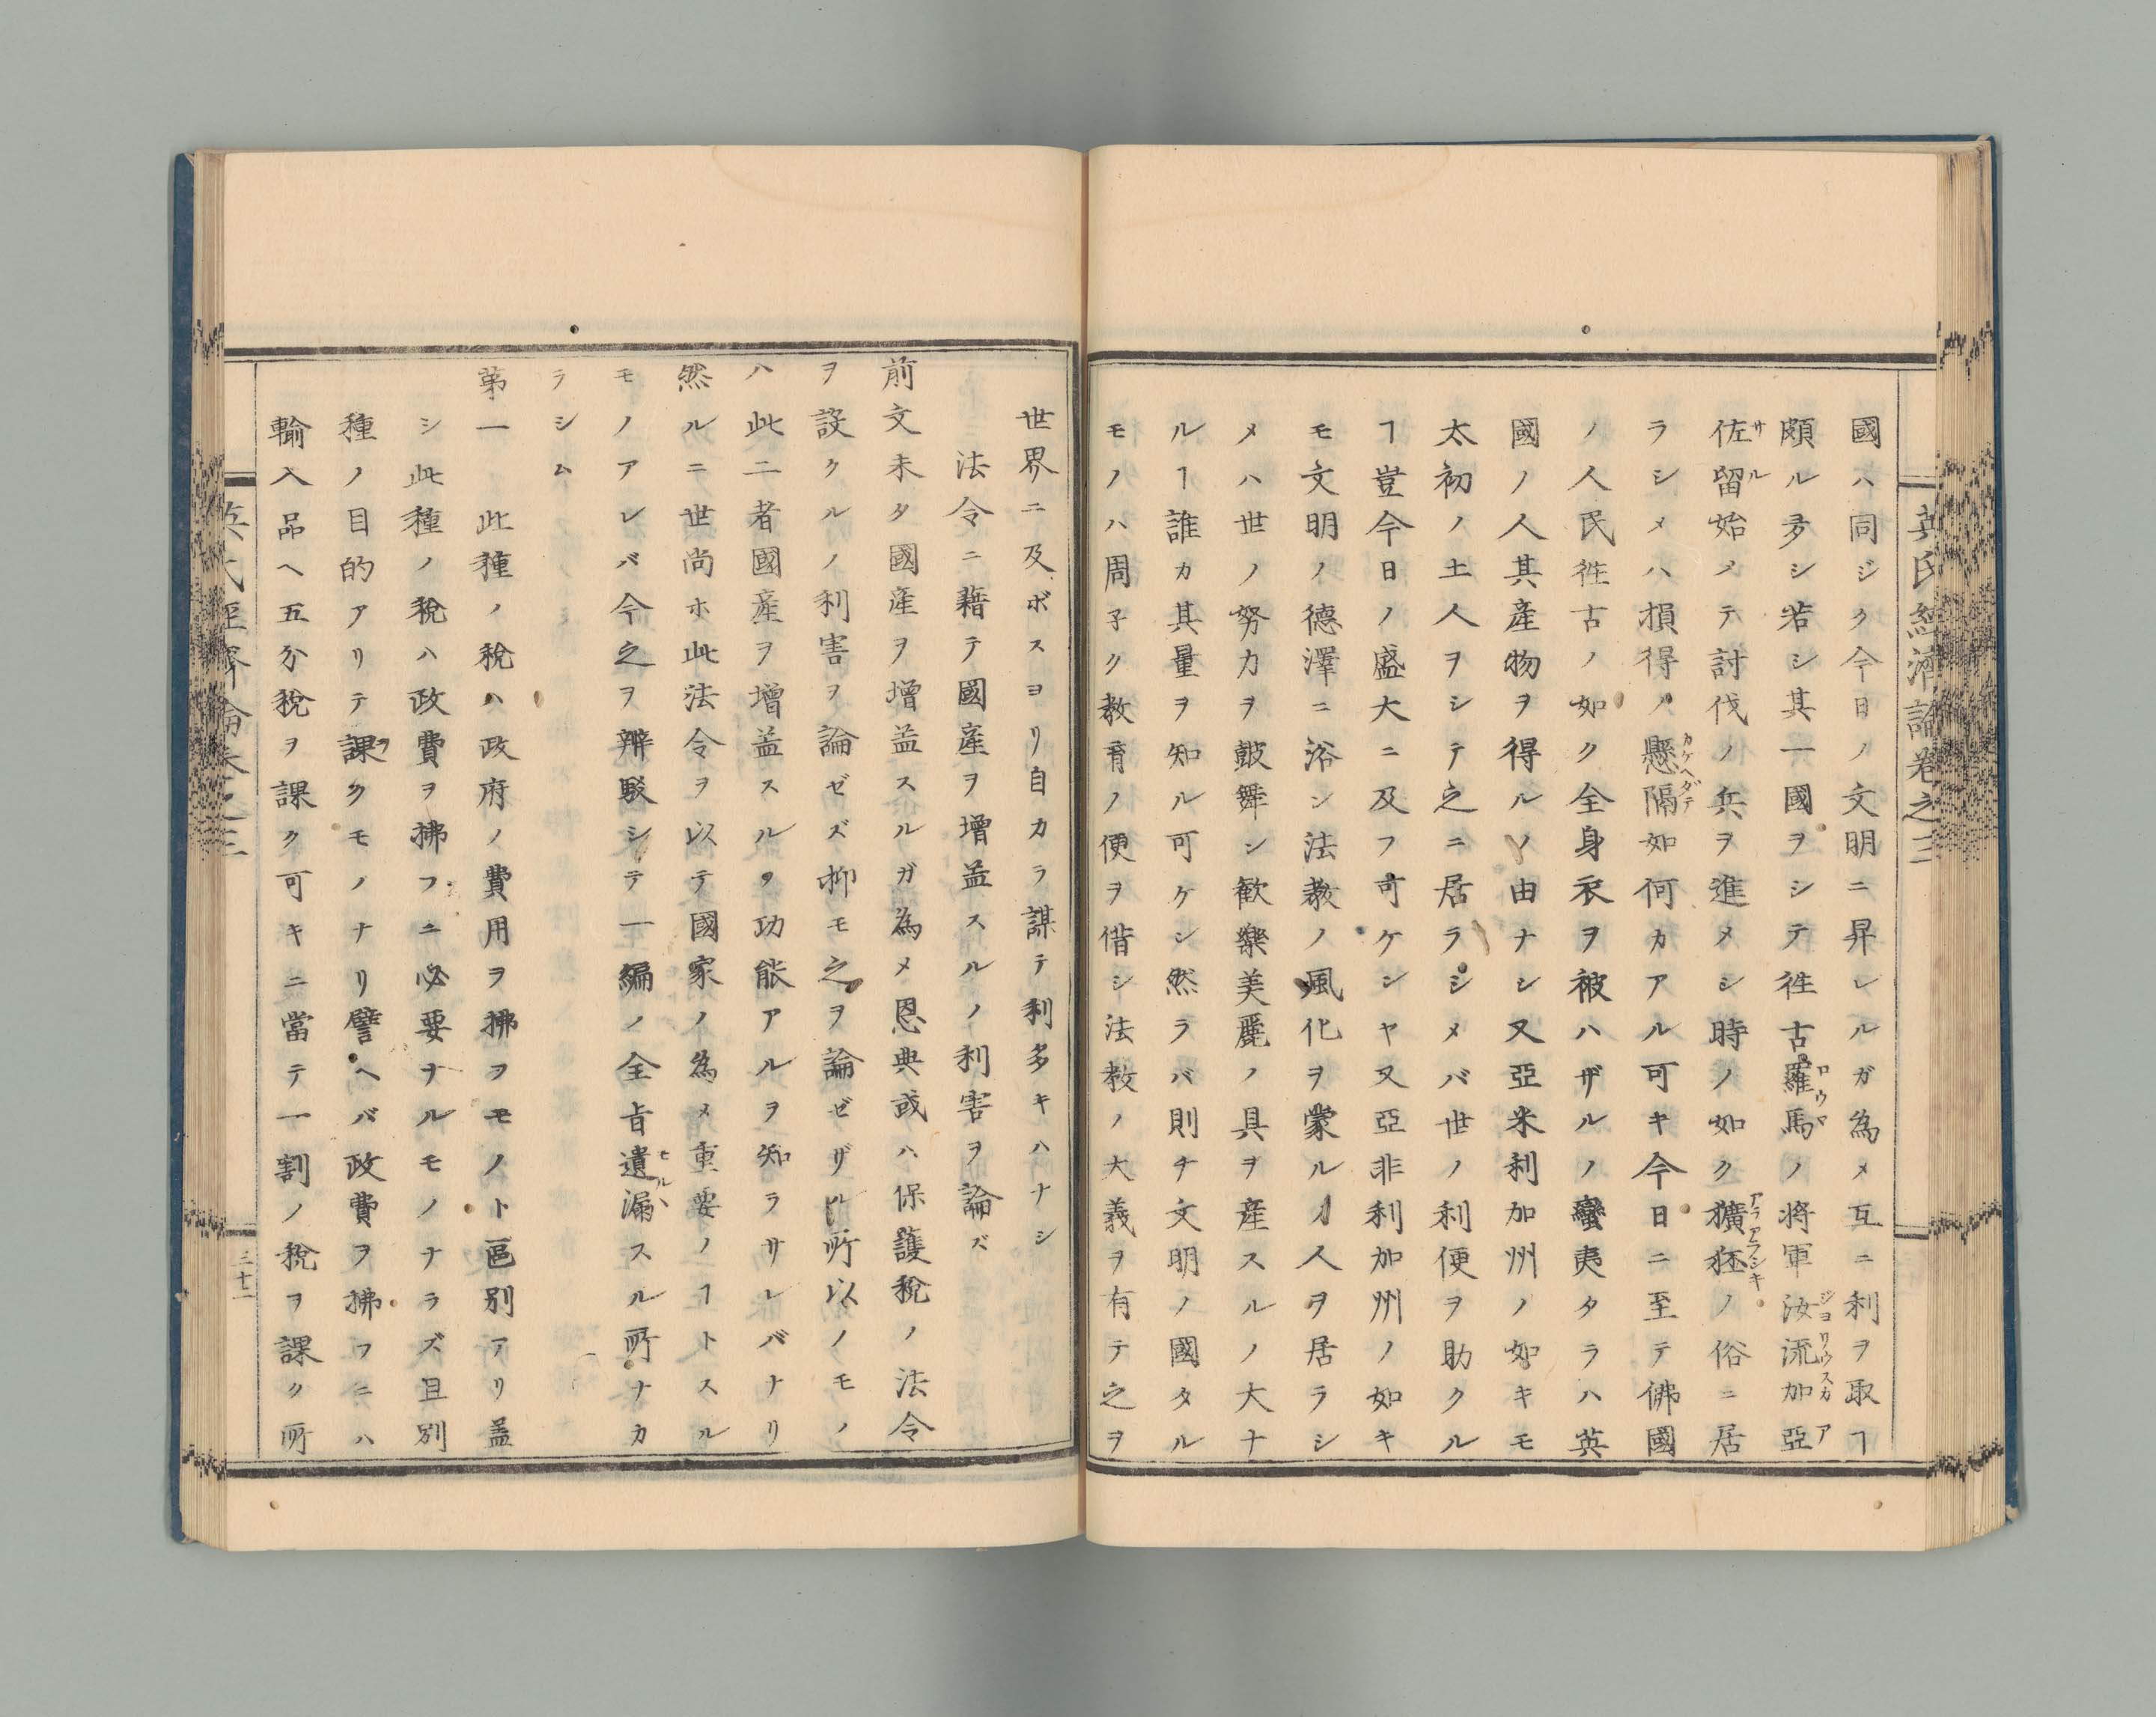 英氏經濟論卷之三
國ハ同ジク今日ノ文明ニ昇レルガ為メ互ニ利ヲ取ヿ
頗ル多シ若シ其一國ヲシテ徃古羅馬ノ將軍汝流加亞
佐留始メテ討伐ノ兵ヲ進メシ時ノ如ク獷狉ノ俗ニ居
ラシメハ損得ノ懸隔如何カアル可キ今日ニ至テ佛國
ノ人民徃古ノ如ク全身衣ヲ被ハザルノ蠻夷タラハ英
國ノ人其産物ヲ得ルノ由ナシ又亞米利加州ノ如キモ
太初ノ土人ヲシテ之ニ居ラシメバ世ノ利便ヲ助クル
ヿ豈今日ノ盛大ニ及フ可ケンヤ又亞非利加州ノ如キ
モ文明ノ德澤ニ浴シ法教ノ風化ヲ蒙ルノ人ヲ居ラシ
メハ世ノ努力ヲ鼓舞シ歓樂美麗ノ具ヲ産スルノ大ナ
ルヿ誰カ其量ヲ知ル可ケン然ラバ則チ文明ノ國タル
モノハ周子ク教育ノ便ヲ偕シ法教ノ大義ヲ有テ之ヲ
世界ニ及ボスヨリ自カラ謀テ利多キハナシ
法令ニ藉テ國産ヲ增益スルノ利害ヲ論ズ
前文未タ國産ヲ增益スルガ為メ恩典或ハ保護稅ノ法令
ヲ設クルノ利害ヲ論ゼズ抑モ之ヲ論ゼザル所以ノモノ
ハ此二者國産ヲ增益スルノ功能アルヲ知ラサレバナリ
然ルニ世尚ホ此法令ヲ以テ國家ノ為メ重要ノヿトスル
モノアレバ今之ヲ辨駁シテ一編ノ全旨遺漏スル所ナカ
ラシム
第一 此種ノ稅ハ政府ノ費用ヲ拂フモノト區別アリ益
シ此種ノ稅ハ政費ヲ拂フニ必要ナルモノナラズ且別
種ノ目的アリテ課クモノナリ譬ヘバ政費ヲ拂フニハ
輸入品ヘ五分稅ヲ課ク可キニ當テ一割ノ稅ヲ課ク所
三十二